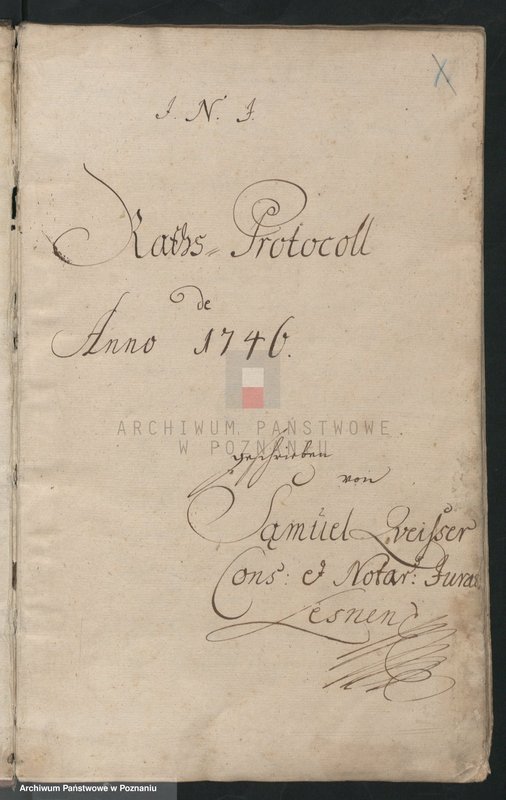 J. N. J.
Raths-Protocoll
de
Anno 1746.
ARCHIWUM PAŃSTWOWE
W POZNANIU
geschrieben
von
Samüel Qveisser
Cons: et Notar: Juras:
Lesnens
Archiwum Państwowe w Poznaniu